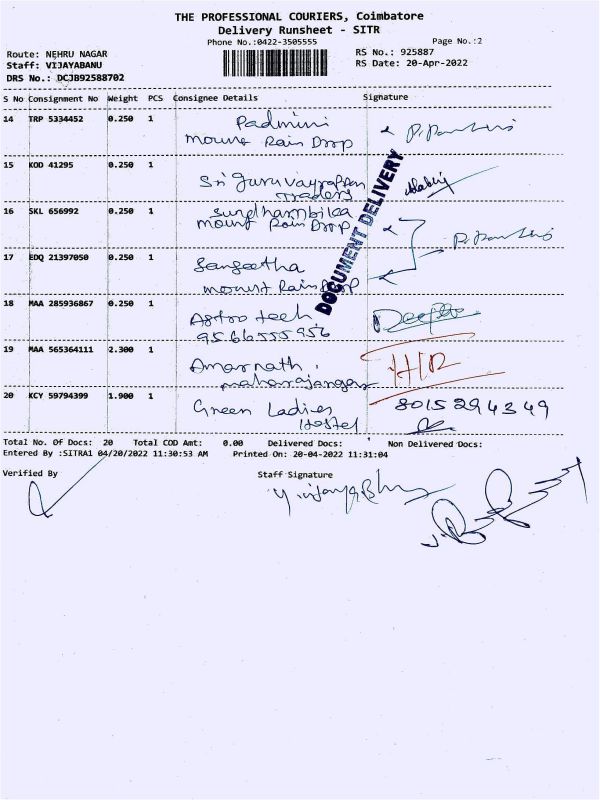 THE PROFESSIONAL COURIERS, Coimbatore
Delivery Runsheet - SITR
Phone No.:0422-3505555
Page No.:2
Route: NEHRU NAGAR
RS No.: 925887
Staff: VIJAYABANU
RS Date: 20-Apr-2022
DRS No.: DCJB92588702
S No Consignment No Weight PCS Consignee Details Signature
14 TRP 5334452 0.250 1 Padmini
Mount Rain Drop
15 KOD 41295 0.250 1
Sri Guruvayrappan
Traders
16 SKL 656992 0.250 1 Sundharambika
Mount Rain Drop
17 EDQ 21397050 0.250 1 Sangeetha
Mount Rain Drop
DOCUMENT DELIVERY
18 MAA 285936867 0.250 1 Astro tech Deepta
9566555956
19 MAA 565364111 2.300 1 Amarnath. H/R
maharajanagar
20 KCY 59794399 1.900 1 Green Ladies 8015294349
Hostel
Total No. Of Docs: 20 Total COD Amt: 0.00 Delivered Docs: Non Delivered Docs:
Entered By :SITRA1 04/20/2022 11:30:53 AM Printed On: 20-04-2022 11:31:04
Verified By Staff Signature